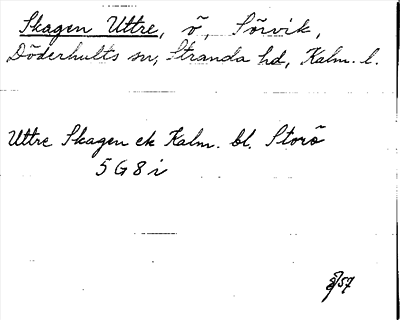 Skagen Yttre, ö, Sörvik,
Döderhults sn, Stranda hd, Kalm. l.
Yttre Skagen ek Kalm. bl. Storö
5 G 8 i